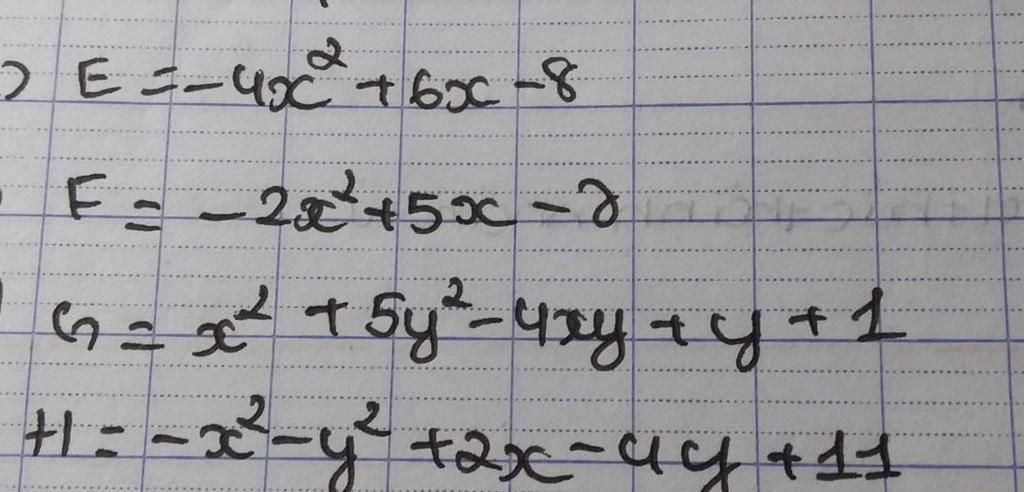 ) E = -4x² + 6x - 8
F = -2x² + 5x - 2
G = x² + 5y² - 4xy + y + 1
H = -x² - y² + 2x - 4y + 11